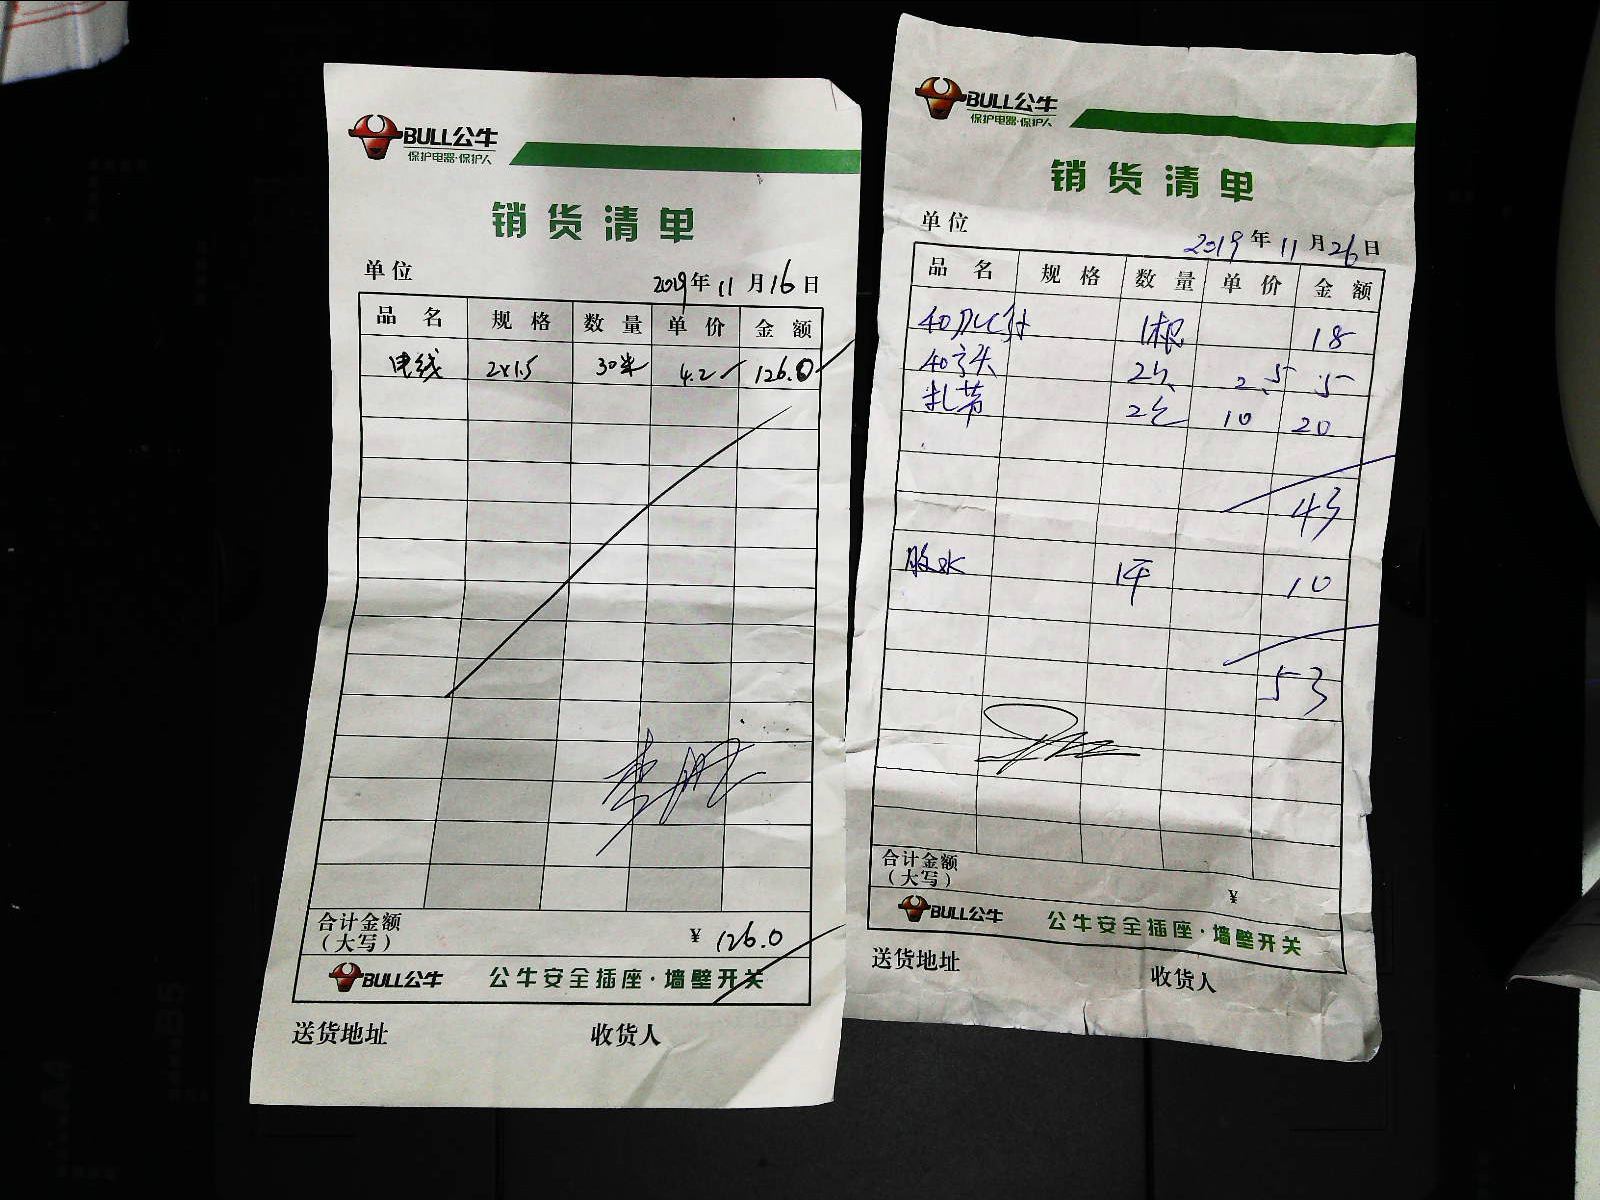 BULL公牛
保护电器·保护人
销货清单
单位
2019年11月16日
品名 规格 数量 单价 金额
电线 2x1.5 30米 4.2 126.0
合计金额
(大写)
¥ 126.0
BULL公牛 公牛安全插座·墙壁开关
送货地址 收货人
BULL公牛
保护电器·保护人
销货清单
单位
2019年11月26日
品名 规格 数量 单价 金额
40 1根 18
40 2个 2.5 5
扎带 2包 10 20
43
胶水 1瓶 10
53
合计金额
(大写)
¥
BULL公牛 公牛安全插座·墙壁开关
送货地址 收货人